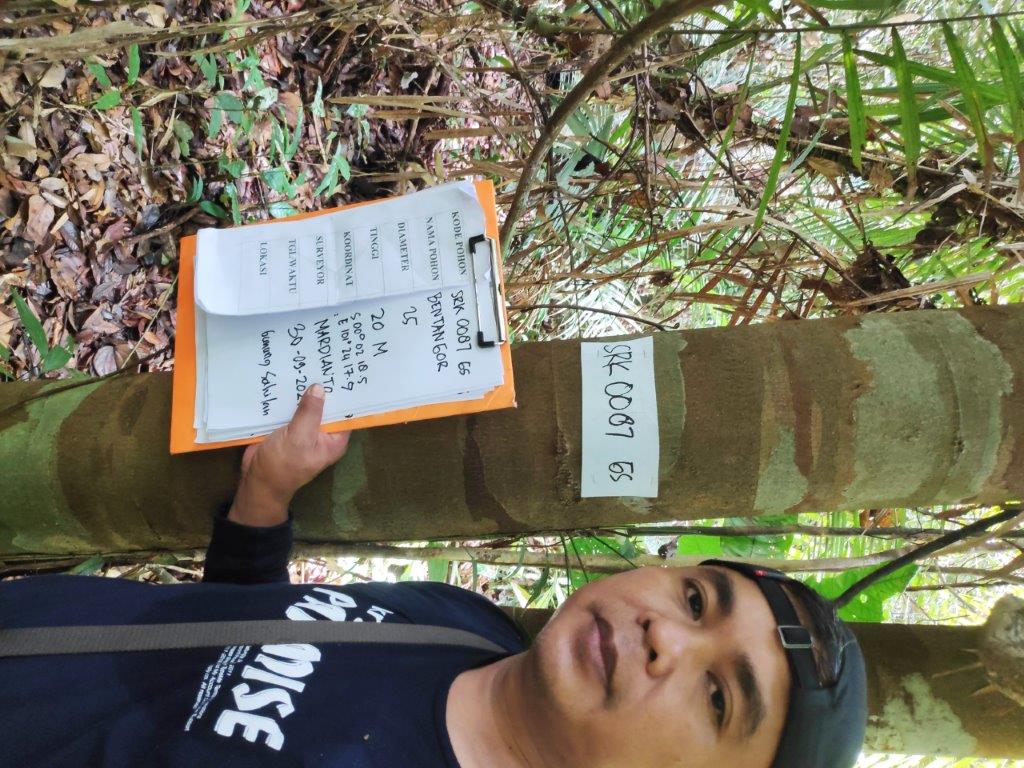 SRK 0087 GS
KODE POHON SRK 0087 GS
NAMA POHON BENTANGOR
DIAMETER 25
TINGGI 20 M
KOORDINAT S 00° 02 18.5
E 101° 24 17.9
SURVEYOR MARDIANTO
TGL/WAKTU 30-09-202
LOKASI Gunung Sahilan
MISE